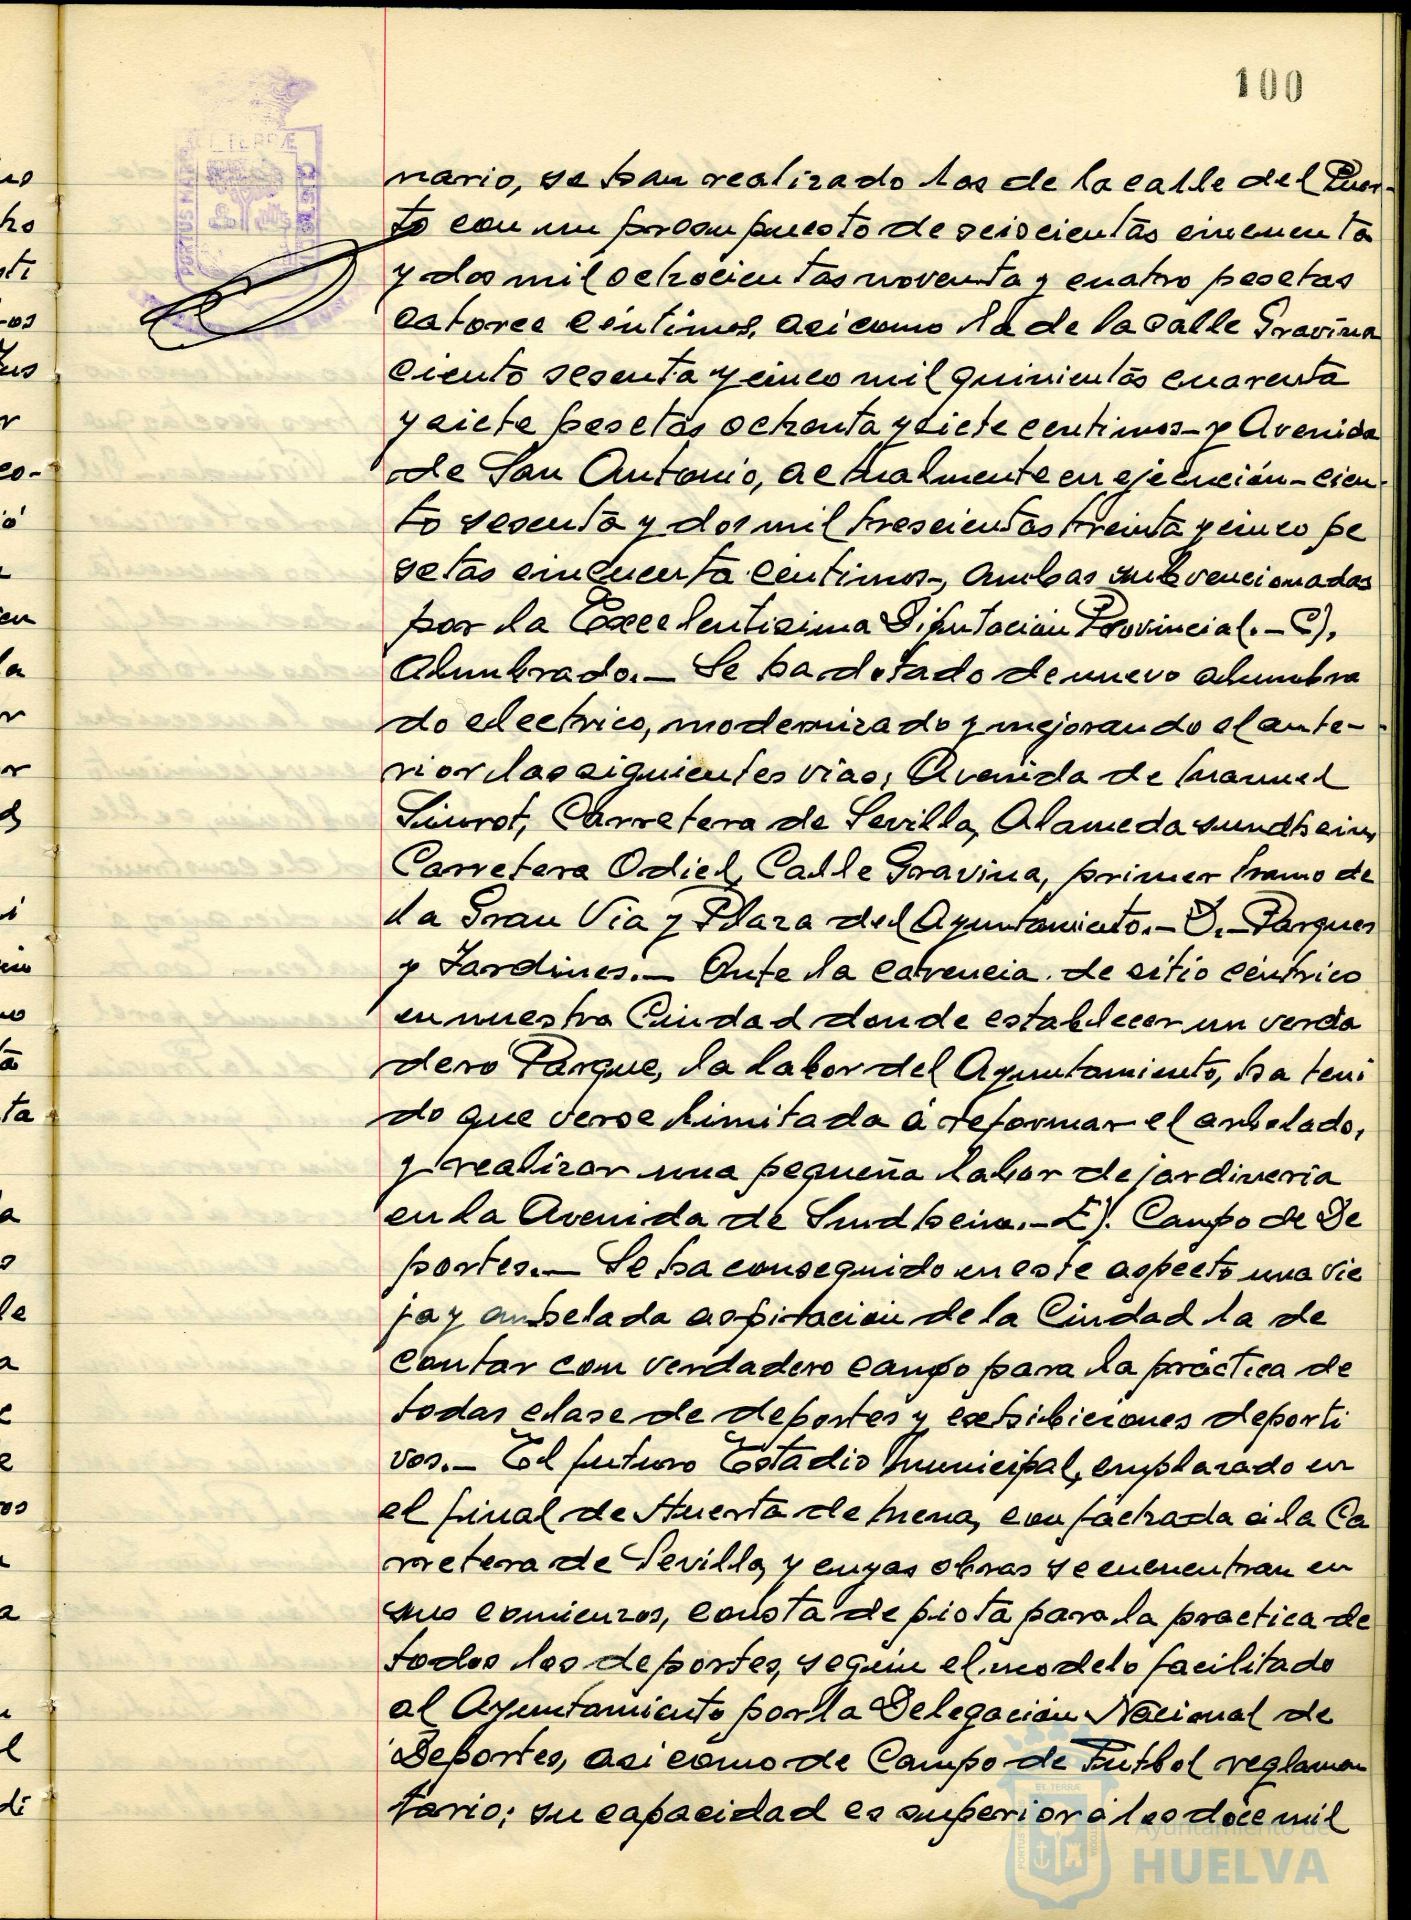 100
nario, se han realizado las de la calle del Puer-
to con un presupuesto de seiscientas cincuenta
y dos mil ochocientas noventa y cuatro pesetas
catorce céntimos, asi como la de la calle Gravina
ciento sesenta y cinco mil quinientas cuarenta
y siete pesetas ochenta y siete centimos- y Avenida
de San Antonio, actualmente en ejecución - cien-
to sesenta y dos mil trescientas treinta y cinco pe
setas cincuenta céntimos-, ambas subvencionadas
por la Excelentisima Diputación Provincial. - C).
Alumbrado. - Se ha dotado de nuevo alumbra
do electrico, modernizado y mejorando el ante-
rior las siguientes vias, Avenida de Manuel
Siurot, Carretera de Sevilla, Alameda Sundheim,
Carretera Odiel, Calle Gravina, primer tramo de
la Gran Via y Plaza del Ayuntamiento. - D. - Parques
y Jardines. - Ante la carencia de sitio céntrico
en nuestra Ciudad donde establecer un verda
dero Parque, la labor del Ayuntamiento, ha teni
do que verse limitada á reformar el arbolado,
y realizar una pequeña labor de jardineria
en la Avenida de Sundheim. - E). Campo de De
portes. - Se ha conseguido en este aspecto una vie
ja y anhelada aspiración de la Ciudad la de
contar con verdadero campo para la práctica de
todas clase de deportes y exhibiciones deporti
vos. - El futuro Estadio Municipal, emplazado en
el final de Huerta de Mena, con fachada á la Ca
rretera de Sevilla, y cuyas obras se encuentran en
sus comienzos, consta de pista para la practica de
todos los deportes, según el modelo facilitado
al Ayuntamiento por la Delegación Nacional de
Deportes, asi como de Campo de Futbol reglamen
tario; su capacidad es superior á los doce mil
Ayuntamiento de
HUELVA